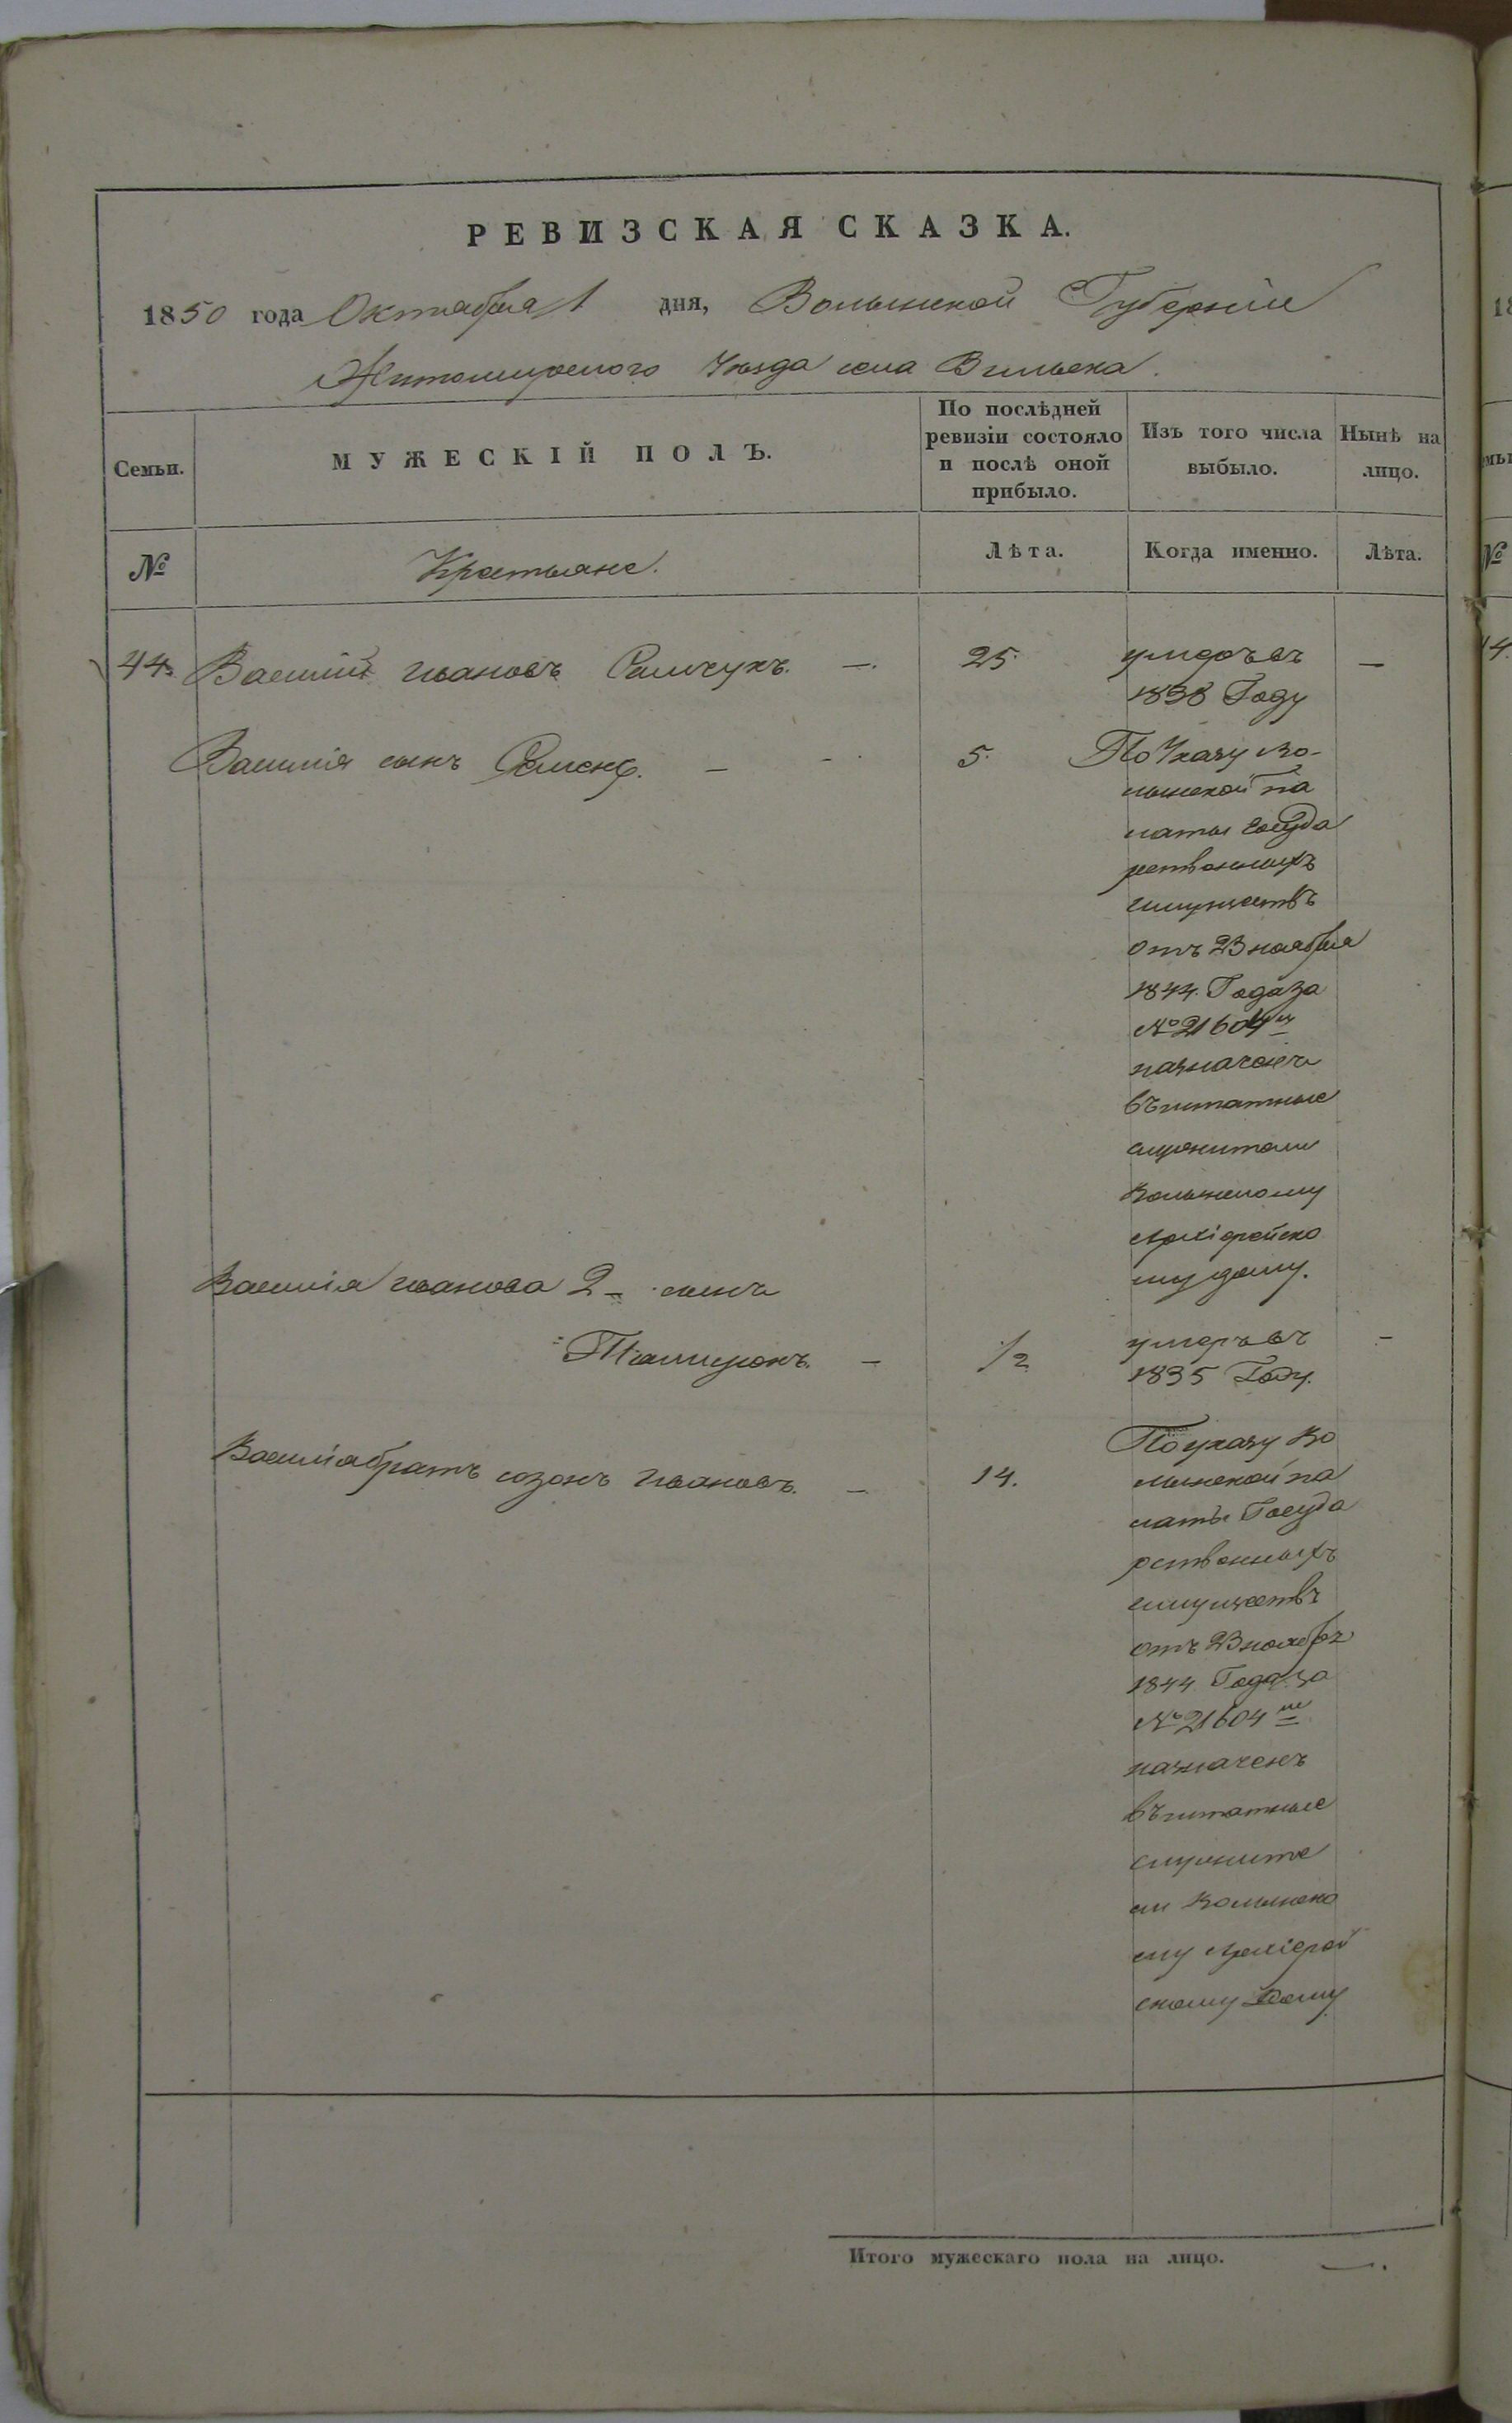 РЕВИЗСКАЯ СКАЗКА.
1850 года Октября 1 дня, Волынской Губернии
Житомирского Уезда села Вильска.
Семьи.
МУЖЕСКІЙ ПОЛЪ.
По послѣдней
ревизіи состояло
и послѣ оной
прибыло.
Изъ того числа
выбыло.
Нынѣ на
лицо.
№
Крестьяне.
Лѣта.
Когда именно.
Лѣта.
44. Василій Ивановъ —. 25. умеръ въ —
1838 Году
Василія сынъ — 5. По Указу Во-
лынской Па
латы Госуда
рственныхъ
имуществъ
отъ 23 ноября
1844. Года за
№ 21604м
назначенъ
въ штатные
служители
Волынскому
Архіерейско
му дому.
Василія Иванова 2 - сынъ
— 1/2 умеръ въ —
1835 Году.
Василія братъ созонъ Ивановъ. — 14. По указу Во
лынской па
латы Госуда
рственныхъ
имуществъ
отъ 23 ноября
1844 Года за
№ 21604м
назначенъ
въ штатные
служите
ли Волынско
му Архіерей
скому Дому
Итого мужескаго пола на лицо. —.